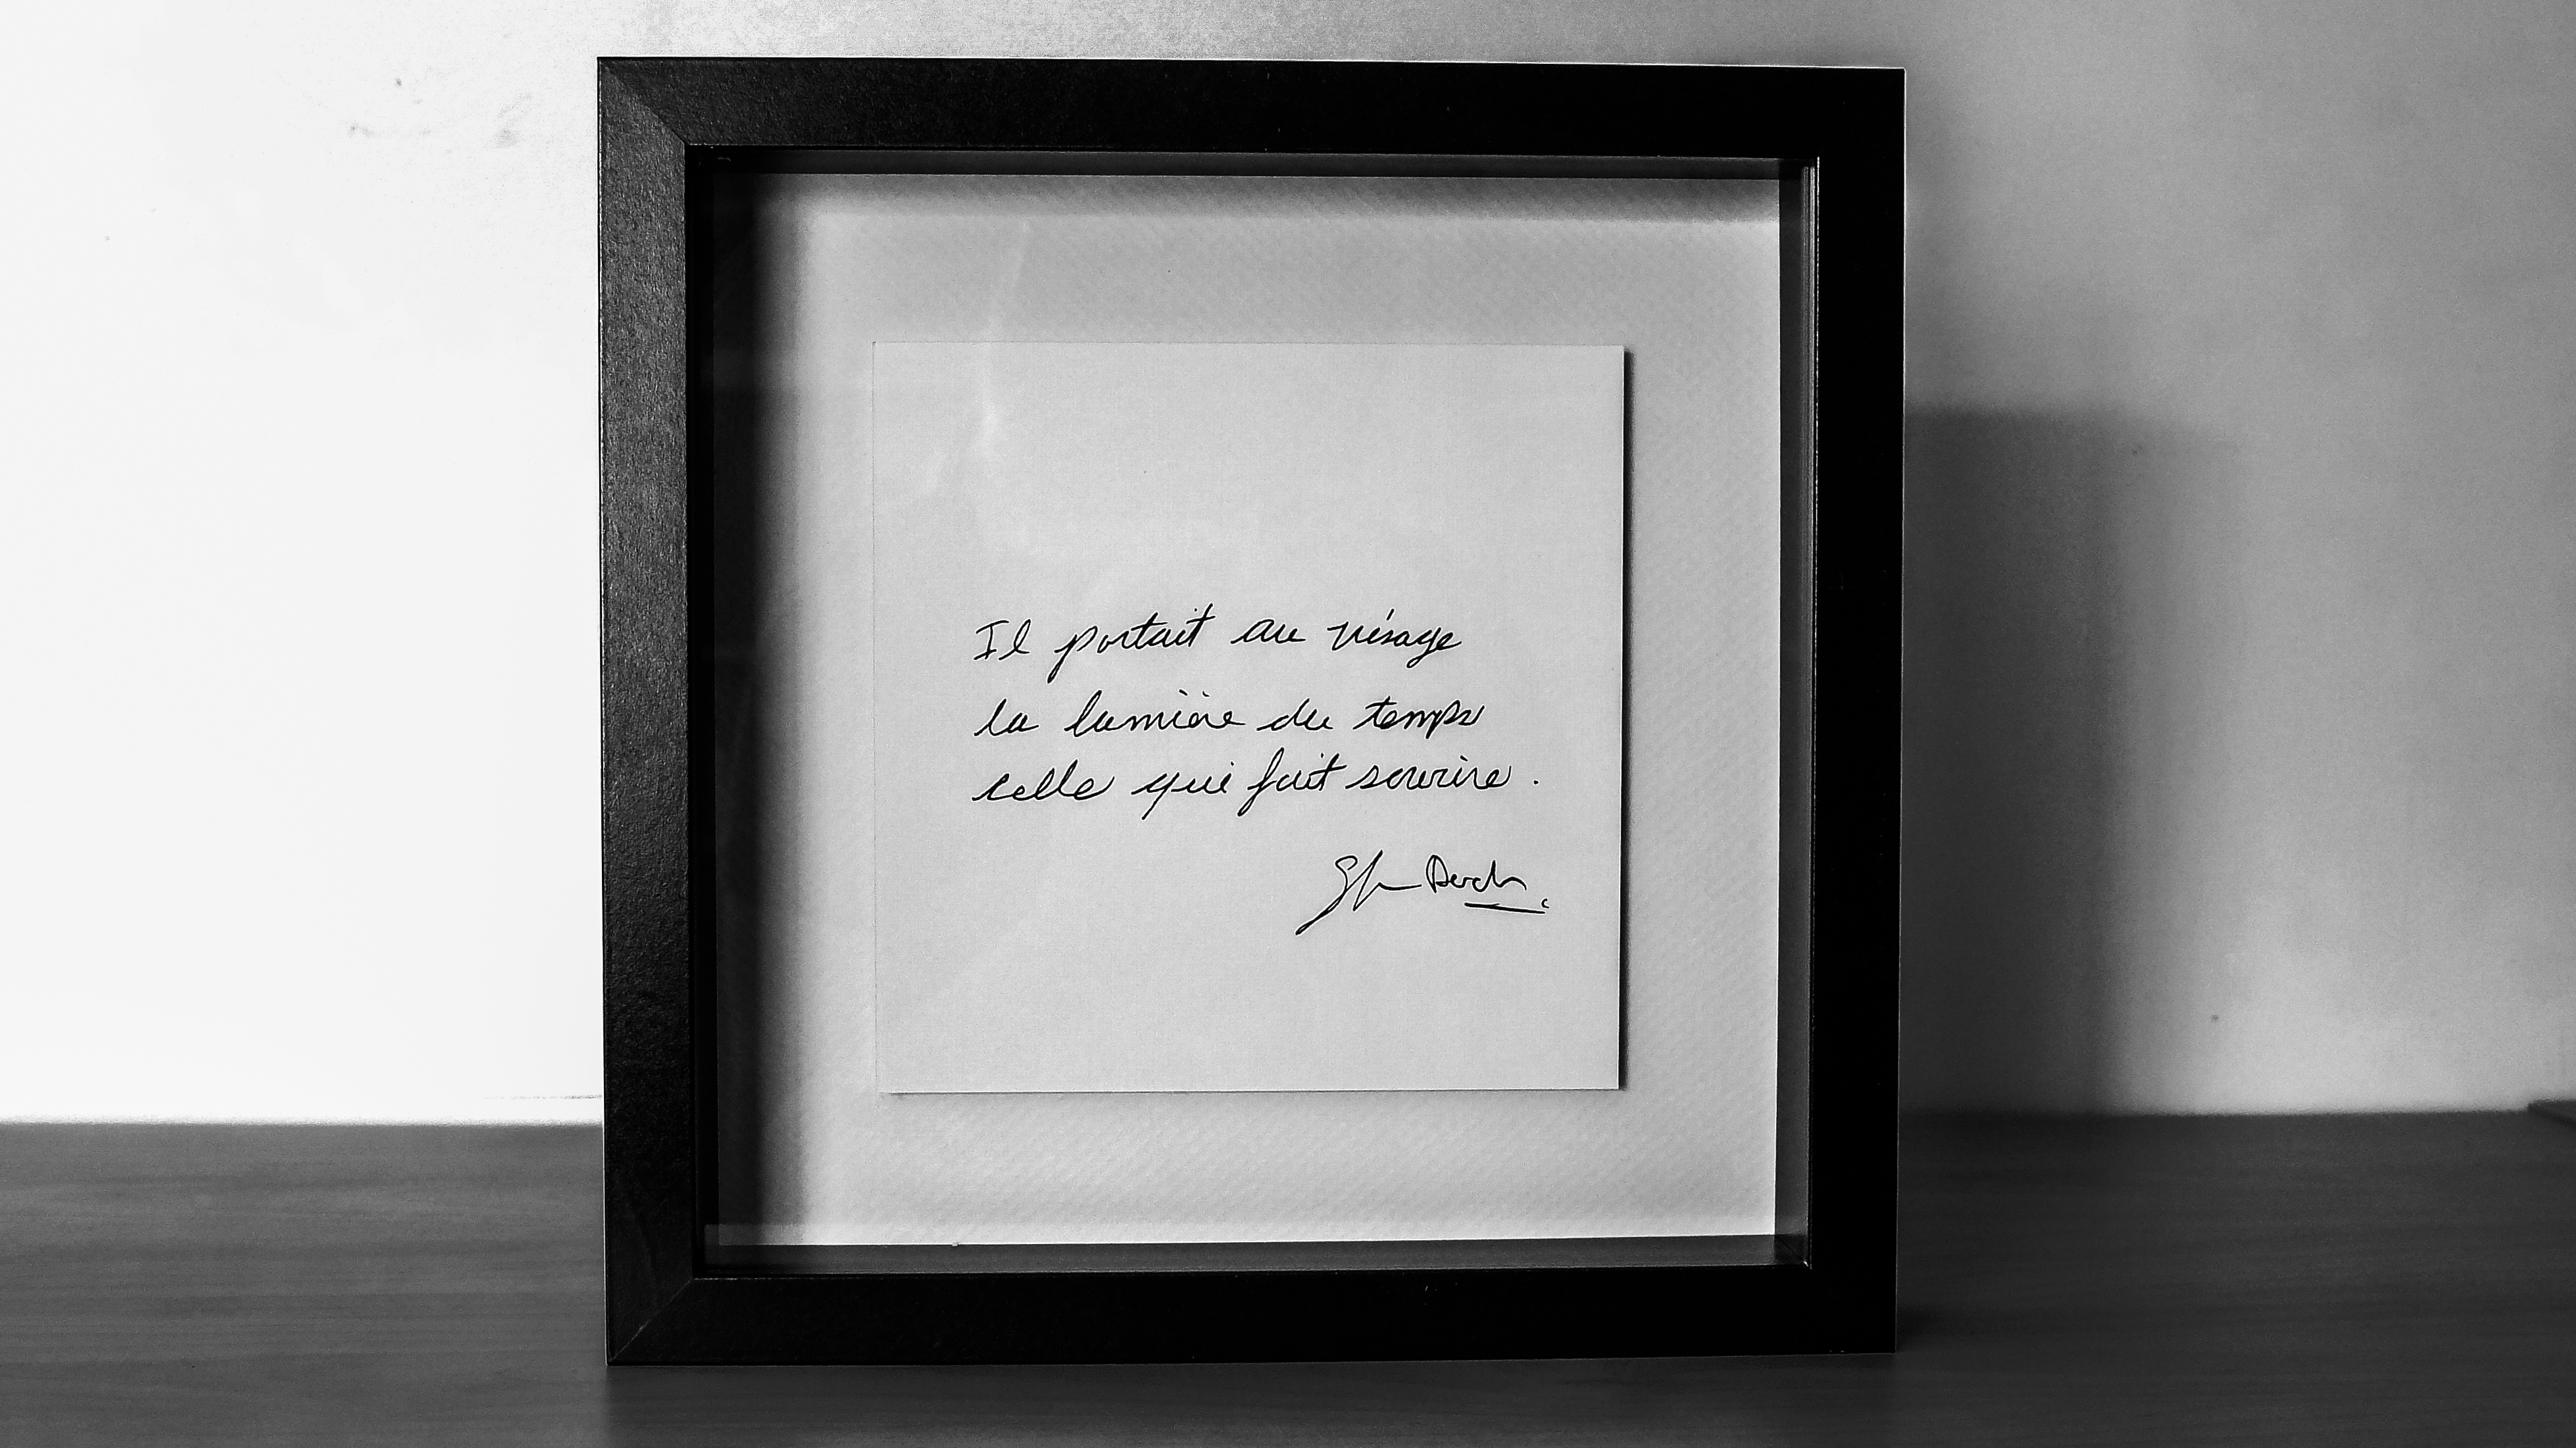 Il portait au visage
la lumière du temps
celle qui fait sourire.